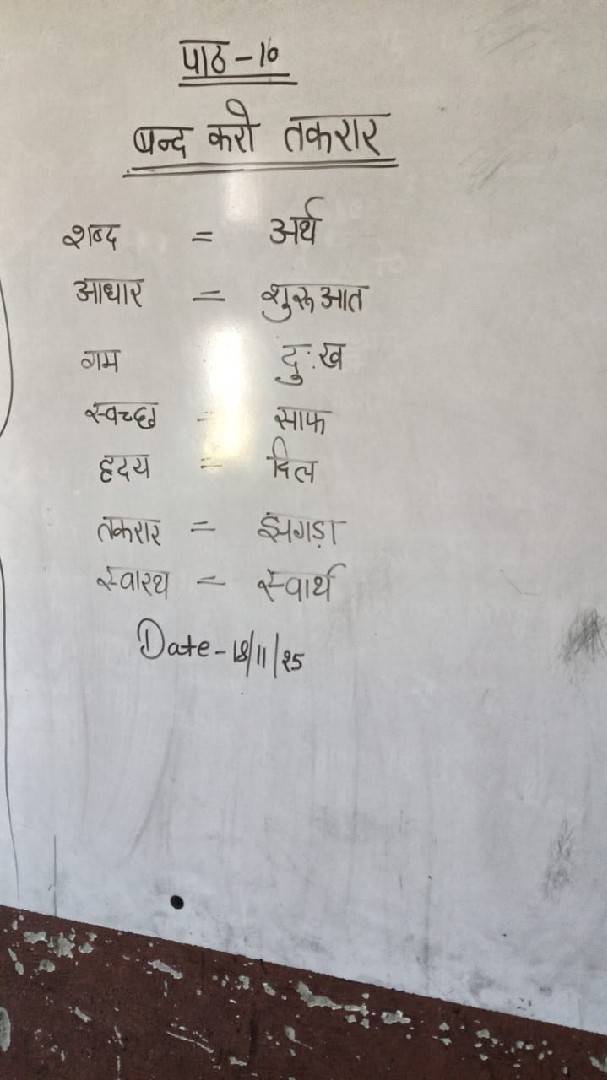 पाठ - 10
बन्द करो तकरार
शब्द = अर्थ
आधार = शुरुआत
गम दुःख
स्वच्छ = साफ
हृदय = दिल
तकरार = झगड़ा
स्वारथ = स्वार्थ
Date - 18/11/25